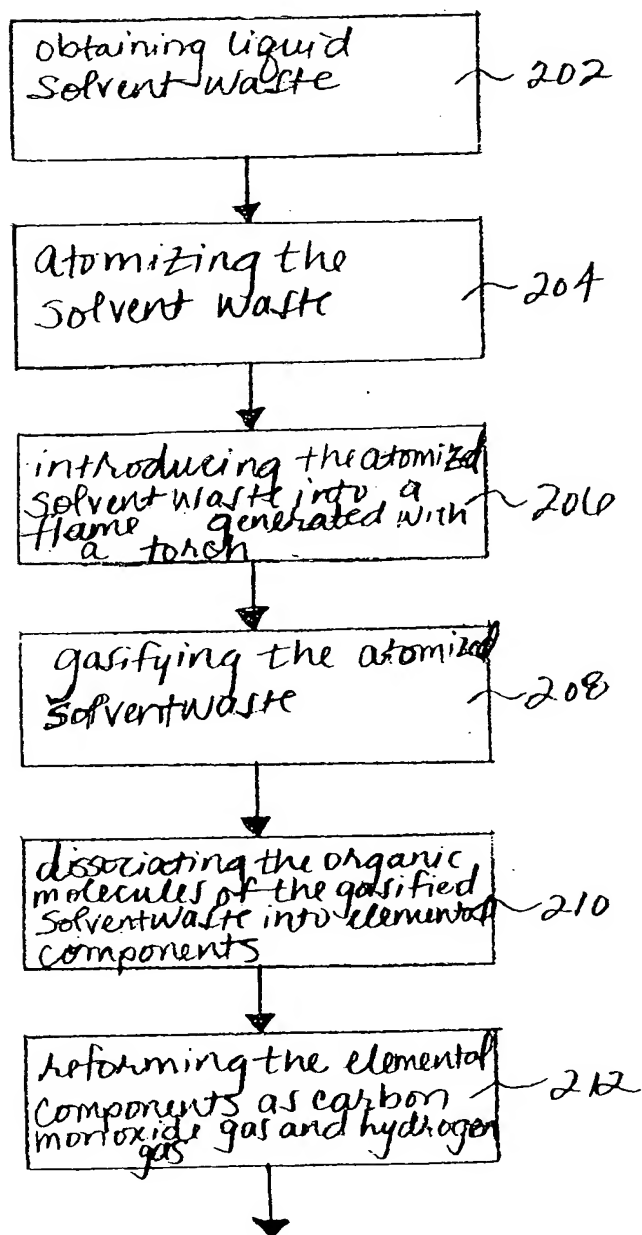 obtaining liquid
solvent waste
202
atomizing the
solvent waste
204
introducing the atomized
solvent waste into a
flame generated with
a torch
206
gasifying the atomized
solvent waste
208
dissociating the organic
molecules of the gasified
solvent waste into elemental
components
210
reforming the elemental
components as carbon
monoxide gas and hydrogen
gas
212